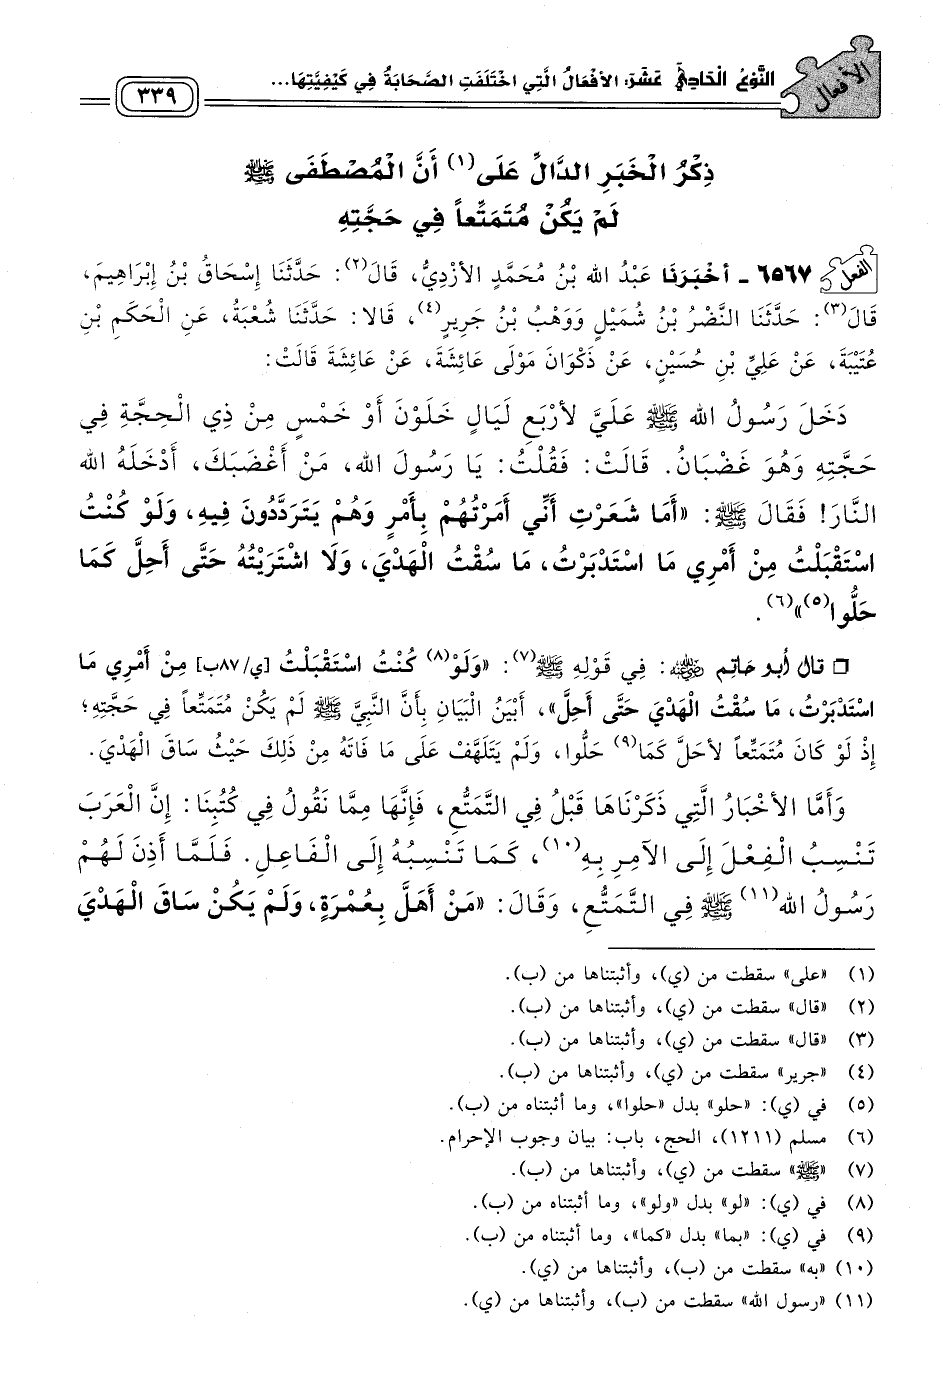 الأفعال
النَّوْعُ الْحَادِيَ عَشَرَ: الأَفْعَالُ الَّتِي اخْتَلَفَتِ الصَّحَابَةُ فِي كَيْفِيَّتِهَا...
٣٣٩
ذِكْرُ الْخَبَرِ الدَّالِّ عَلَى(١) أَنَّ الْمُصْطَفَى ﷺ
لَمْ يَكُنْ مُتَمَتِّعاً فِي حَجَّتِهِ
الفعل ٦٥٦٧ - أَخْبَرَنَا عَبْدُ الله بْنُ مُحَمَّدٍ الأَزْدِيُّ، قَالَ(٢): حَدَّثَنَا إِسْحَاقُ بْنُ إِبْرَاهِيمَ،
قَالَ(٣): حَدَّثَنَا النَّضْرُ بْنُ شُمَيْلٍ وَوَهْبُ بْنُ جَرِيرٍ(٤)، قَالا: حَدَّثَنَا شُعْبَةُ، عَنِ الْحَكَمِ بْنِ
عُتَيْبَةَ، عَنْ عَلِيِّ بْنِ حُسَيْنٍ، عَنْ ذَكْوَانَ مَوْلَى عَائِشَةَ، عَنْ عَائِشَةَ قَالَتْ:
دَخَلَ رَسُولُ الله ﷺ عَلَيَّ لأَرْبَعِ لَيَالٍ خَلَوْنَ أَوْ خَمْسٍ مِنْ ذِي الْحِجَّةِ فِي
حَجَّتِهِ وَهُوَ غَضْبَانُ. قَالَتْ: فَقُلْتُ: يَا رَسُولَ الله، مَنْ أَغْضَبَكَ، أَدْخَلَهُ الله
النَّارَ! فَقَالَ ﷺ: «أَمَا شَعَرْتِ أَنِّي أَمَرْتُهُمْ بِأَمْرٍ وَهُمْ يَتَرَدَّدُونَ فِيهِ، وَلَوْ كُنْتُ
اسْتَقْبَلْتُ مِنْ أَمْرِي مَا اسْتَدْبَرْتُ، مَا سُقْتُ الْهَدْيَ، وَلَا اشْتَرَيْتُهُ حَتَّى أَحِلَّ كَمَا
حَلُّوا(٥)»(٦).
□ قال أبو حاتم ﵁: فِي قَوْلِهِ ﷺ(٧): «وَلَوْ(٨) كُنْتُ اسْتَقْبَلْتُ [ي/٨٧ب] مِنْ أَمْرِي مَا
اسْتَدْبَرْتُ، مَا سُقْتُ الْهَدْيَ حَتَّى أَحِلَّ»، أَبْيَنُ الْبَيَانِ بِأَنَّ النَّبِيَّ ﷺ لَمْ يَكُنْ مُتَمَتِّعاً فِي حَجَّتِهِ؛
إِذْ لَوْ كَانَ مُتَمَتِّعاً لأَحَلَّ كَمَا(٩) حَلُّوا، وَلَمْ يَتَلَهَّفْ عَلَى مَا فَاتَهُ مِنْ ذَلِكَ حَيْثُ سَاقَ الْهَدْيَ.
وَأَمَّا الأَخْبَارُ الَّتِي ذَكَرْنَاهَا قَبْلُ فِي التَّمَتُّعِ، فَإِنَّهَا مِمَّا نَقُولُ فِي كُتُبِنَا: إِنَّ الْعَرَبَ
تَنْسِبُ الْفِعْلَ إِلَى الآمِرِ بِهِ(١٠)، كَمَا تَنْسِبُهُ إِلَى الْفَاعِلِ. فَلَمَّا أَذِنَ لَهُمْ
رَسُولُ الله(١١) ﷺ فِي التَّمَتُّعِ، وَقَالَ: «مَنْ أَهَلَّ بِعُمْرَةٍ، وَلَمْ يَكُنْ سَاقَ الْهَدْيَ
(١) «على» سقطت من (ي)، وأثبتناها من (ب).
(٢) «قال» سقطت من (ي)، وأثبتناها من (ب).
(٣) «قال» سقطت من (ي)، وأثبتناها من (ب).
(٤) «جرير» سقطت من (ي)، وأثبتناها من (ب).
(٥) في (ي): «حلو» بدل «حلوا»، وما أثبتناه من (ب).
(٦) مسلم (١٢١١)، الحج، باب: بيان وجوب الإحرام.
(٧) «ﷺ» سقطت من (ي)، وأثبتناها من (ب).
(٨) في (ي): «لو» بدل «ولو»، وما أثبتناه من (ب).
(٩) في (ي): «بما» بدل «كما»، وما أثبتناه من (ب).
(١٠) «به» سقطت من (ب)، وأثبتناها من (ي).
(١١) «رسول الله» سقطت من (ب)، وأثبتناها من (ي).